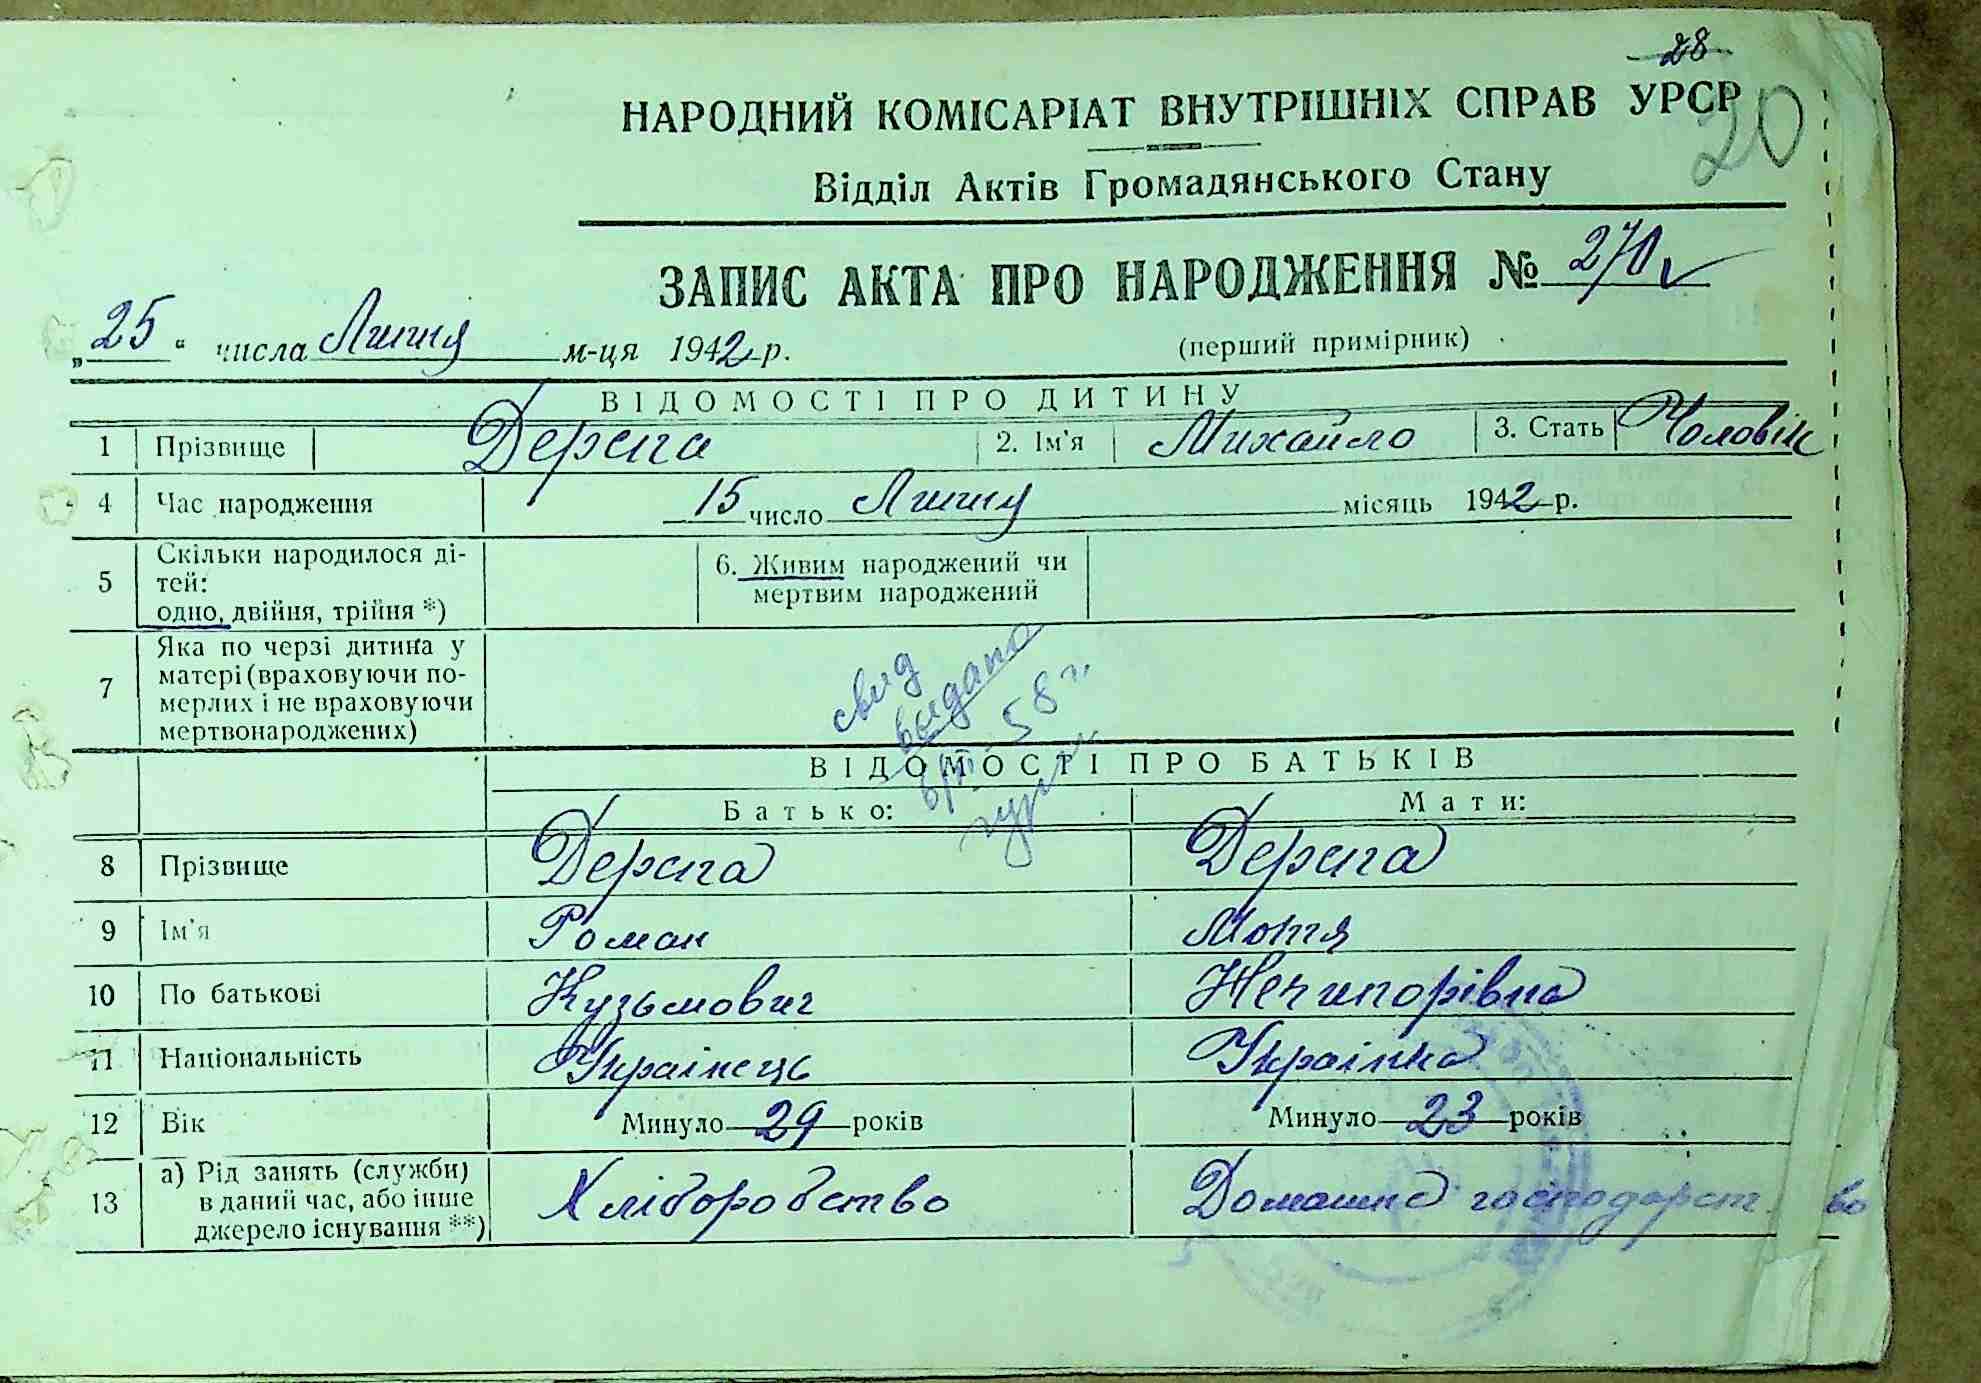 28
20
НАРОДНИЙ КОМІСАРІАТ ВНУТРІШНІХ СПРАВ УРСР
Відділ Актів Громадянського Стану
ЗАПИС АКТА ПРО НАРОДЖЕННЯ № 270
„25" числа Липня м-ця 1942 р. (перший примірник)
ВІДОМОСТІ ПРО ДИТИНУ
1 Прізвище Дерега 2. Ім'я Михайло 3. Стать Чоловік
4 Час народження 15 число Липня місяць 1942 р.
5 Скільки народилося ді-
тей:
одно, двійня, трійня *)
6. Живим народжений чи
мертвим народжений
7 Яка по черзі дитина у
матері (враховуючи по-
мерлих і не враховуючи
мертвонароджених)
свид
видано
58 г.
ВІДОМОСТІ ПРО БАТЬКІВ
Батько: Мати:
8 Прізвище Дерега Дерега
9 Ім'я Роман Мотя
10 По батькові Кузьмович Нечипорівна
11 Національність Українець Українка
12 Вік Минуло 29 років Минуло 23 років
13 а) Рід занять (служби)
в даний час, або інше
джерело існування **)
Хліборобство Домашнє господарство